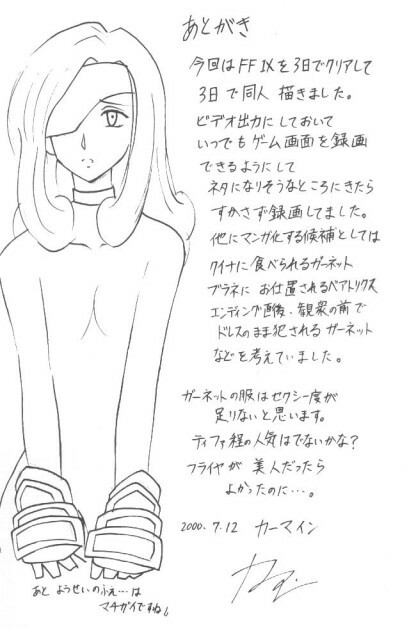 あとがき
今回はFFIXを3日でクリアして
3日で同人描きました。
ビデオ出力にしておいて
いつでもゲーム画面を録画
できるようにして
ネタになりそうなところにきたら
すかさず録画してました。
他にマンガ化する候補としては
クイナに食べられるガーネット
ブラネにお仕置されるベアトリクス
エンディング直後、観衆の前で
ドレスのまま犯されるガーネット
などを考えていました。
ガーネットの服はセクシー度が
足りないと思います。
ティファ程の人気はでないかな?
フライヤが美人だったら
よかったのに…。
2000.7.12 カーマイン
あと ようせいのふえ…は
マチガイですね